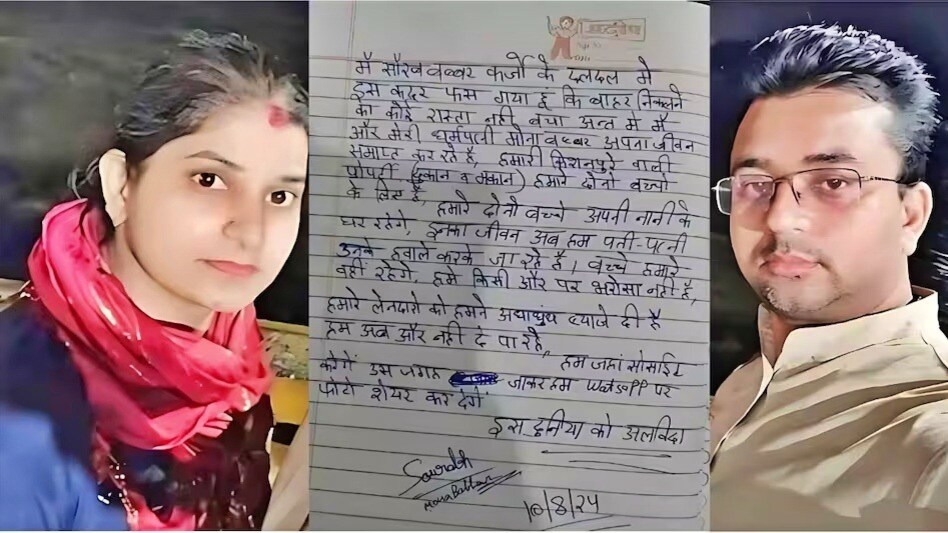 मै सौरव बब्बर कर्जो के दलदल मे
इस कदर फस गया हूं कि बाहर निकलने
का कोई रास्ता नही बचा अन्त मे मै
और मेरी धर्मपत्नी मोना बब्बर अपना जीवन
समाप्त कर रहे है, हमारी किशनपुरे वाली
प्रोपर्टी (दुकान व मकान) हमारे दोनो बच्चो
के लिए है, हमारे दोनो बच्चे अपनी नानी के
घर रहेंगे, इनका जीवन अब हम पती-पत्नी
उनके हवाले करके जा रहे है। बच्चे हमारे
वही रहेगे, हमे किसी और पर भरोसा नही है,
हमारे लेनदारो को हमने अंधाधुंध ब्याजे दी है
हम अब और नही दे पा रहे,
हम जहां सोसाईट
करेगें उस जगह जाकर हम Watsapp पर
फोटो शेयर कर देगें
इस दुनिया को अलविदा
Saurabh
Mona Babbar
10/8/24